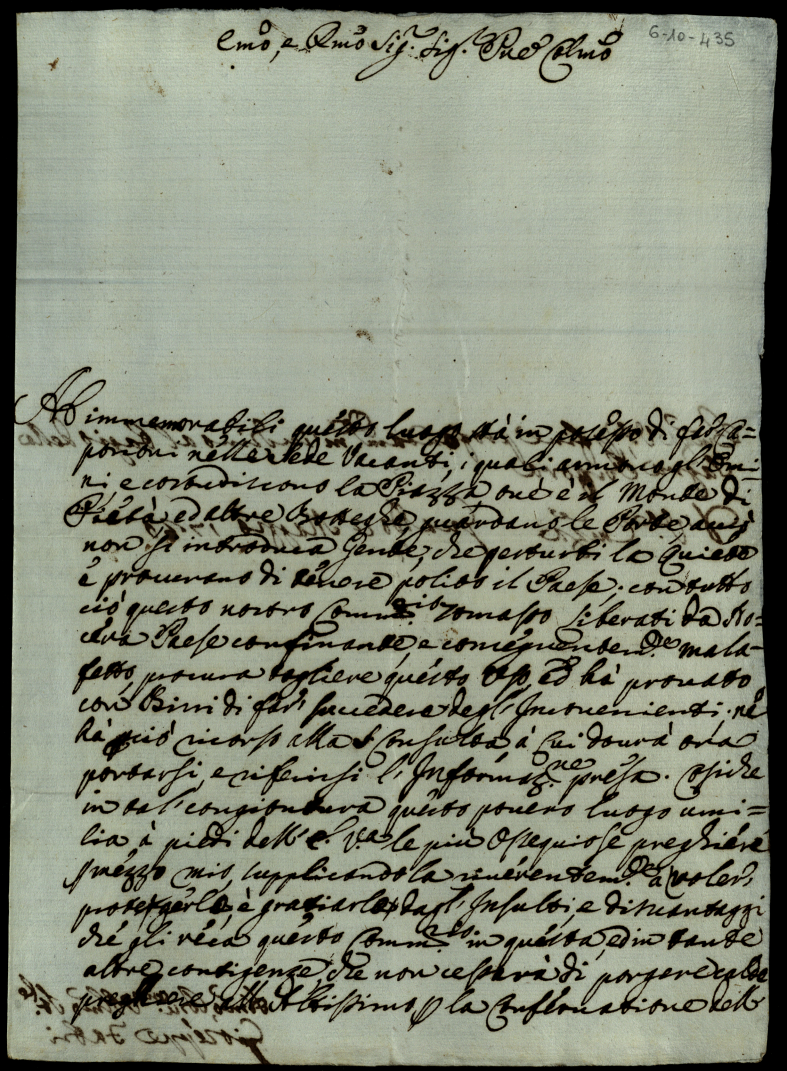 6-10-435
Emo, e Rmo Sig.r Sig.r Pne Colmo
Ab immemorabili questo luogo stà in possesso di far Ca=
porioni nelle Sede Vacanti, i quali armano gl'Omi=
ni e custodiscono la Piazza ove è il Monte di
Pietà ed altre Botteghe guardano le Porte, acciò
non si introduca Gente, che perturbi la Quiete
e procurano di tenere polito il Paese; con tutto
ciò questo nostro Comm.rio Tomasso Liberati da No=
cera Paese confinante, e conseguentem.e mala=
fetto, procura togliere questo Uso, ed hà provato
con Birri di far succedere degl'Inconvenienti. nè
hà ciò ricorso alla S. Consulta à cui dovrà ora
portarsi, e riferirsi l'Informaz.ne presa. Osiche
in tal congiontura questo povero luogo umi=
lia à piedi dell'E. V.a le più ossequiose preghiere
p mezzo mio, supplicandola riverentem.e à voler
proteggerlo, è gratiarlo dagl'Insulti, e disvantaggi
che gli reca questo Comm.rio in questa, ed in tante
altre contigenze, che non cessarà di porgere calde
preghiere all'Altissimo p la Conservatione dell'